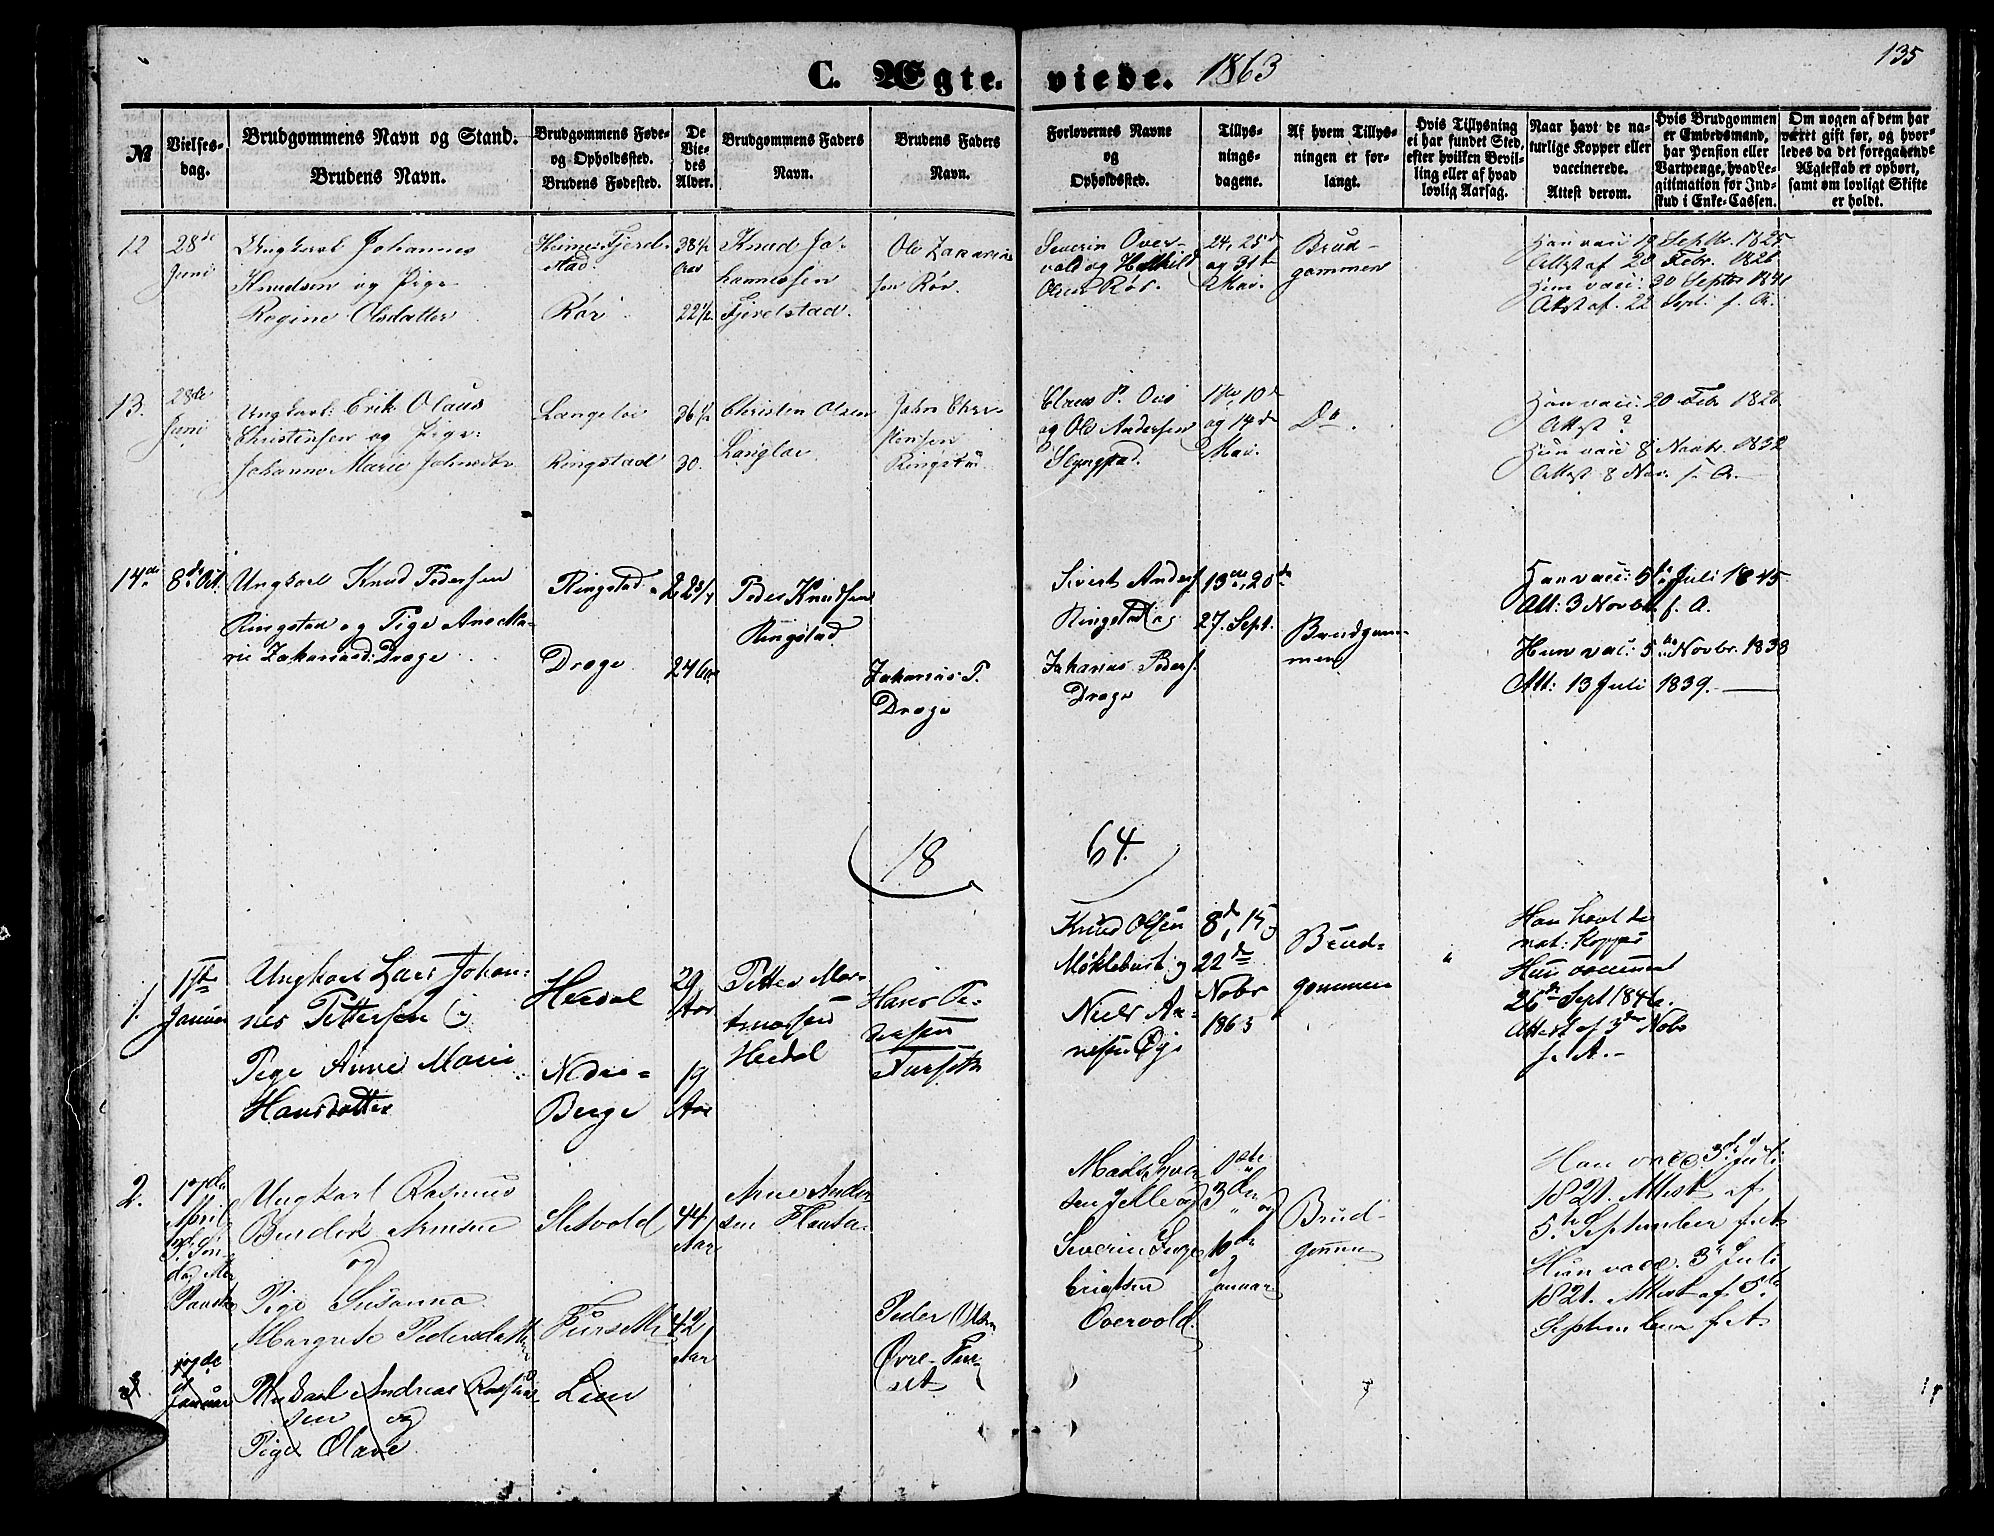 135
C. Ægteviede. 1863
№
Vielsesdag.
Brudgommens Navn og Stand.
Brudens Navn.
Brudgommens Føde-
og Opholdssted.
Brudens Fødested.
De
Vie-
des
Alder.
Brudgommens Faders
Navn.
Brudens Faders
Navn.
Forlovernes Navne
og
Opholdssted.
Tillys-
nings-
dagene.
Af hvem Tillys-
ningen er for-
langt.
Hvis Tillysning
ei har fundet Sted,
efter hvilken Bevil-
ling eller af hvad
lovlig Aarsag.
Naar havt de na-
turlige Kopper eller
vaccinerede.
Attest derom.
Hvis Brudgommen
er Embedsmand,
har Pension eller
Vartpenge, hvad Le-
gitimation for Ind-
skud i Enke-Cassen.
Om nogen af dem har
været gift før, og hvor-
ledes da det foregaaende
Ægteskab er ophørt,
samt om lovligt Skifte
er holdt.
12
28de
Juni
Ungkarl Johannes
Knudsen og Pige
Regine Olsdatter
Fjerd-
stad.
Rör
38½
Aar
22½
Knud Jo-
hannessen
Fjerdstad.
Ole Zakarias-
sen Rör.
Severin Over-
vold og
Olsen Rör.
24, 25d
og 31t
Mai.
Brud-
gommen
Han vacc 19 Septbr. 1825
Attest af 20 Febr. 1826
Hun vacc. 20 Septbr 1841
Attest af. 22 Septb. s. A.
13.
28de
Juni
Ungkarl: Erik Olaus
Christensen og Pige:
Johanne Marie Johnsdtr.
Langeloe
Ringstad
36½
30.
Christen Olsen
Langloe.
John Chri-
stensen
Ringstad
Claus P.
og Ole Andersen
10d
og 14d
Mai.
Do.
Han vacc 20 Febr 1826
Attest?
Hun vacc 8 Novbr. 1832
Attest 8 Nov. s. A.
14de
8de Oct.
Ungkarl Knud Pedersen
Ringstad og Pige Ane Ma-
rie Zakariasd: Drage
Ringstad
Drage
22¾
24 6m
Peder Knudsen
Ringstad
Zakarias P.
Drage
Sivert Anders.
Ringstad og
Zakarias Peders.
Drage
13de, 20de
27. Sept.
Brudgom-
men
Han vacc: 5te Juli 1845
Att: 3 Novbr. s. A.
Hun vac: 5te Novbr. 1838
Att: 13 Juli 1839.
18 64.
1.
1ste
Januar
Ungkarl Lars Johan-
nes Pettersen og
Pige Anne Marie
Hansdatter
Heedal
Nedre-
Berge
29
Aar
19
Aar
Petter Mar-
Heedal
Hans Pe-
dersen
Furseth
Knud Olsen
Möklebust og
Niels An-
nesen Öye
8de, 15,
22de
Nobr
1863
Brud-
gommen
"
Han havt de
nat: Kopper
Hun vaccineret
26de Sept 1846.
Attest af 3die Nobr
s. A.-
2.
17de
April
Ungkarl Rasmus
Bendik Arnesen
og
Pige Susanna
Margrete Pedersdatter
Sletvold
Furseth
44
Aar
42
Aar
Arne Ander-
sen
Peder Olsen
Övre-Fur-
set
Mads Syver-
sen Jelle og
Severin Inge-
brigtsen
Overvold.
1ste
3die og
10de
Januar
Brud-
gommen
Han vacc. 3de Juli
1821. Attest af
5te September s. A.
Hun vacc. 3 Juli
1821. Attest af 5te
September s. A.
3.
17de
Januar
Andreas
sen og
Pige Olave
Lien